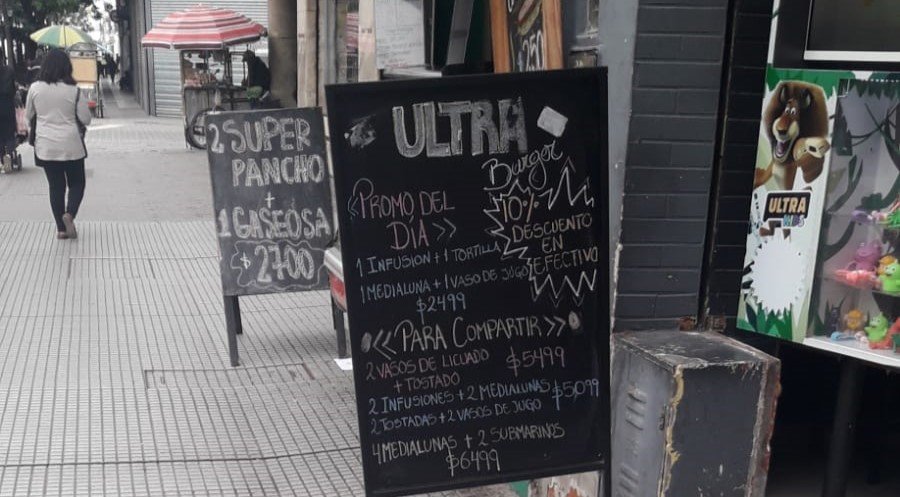 2 SUPER
PANCHO
+
1 GASEOSA
$2700
ULTRA
Burger
10%
DESCUENTO
EN
EFECTIVO
«PROMO DEL
DÍA»
1 INFUSION + 1 TORTILLA
1 MEDIALUNA + 1 VASO DE JUGO
$2499
«PARA COMPARTIR»
2 VASOS DE LICUADO $5499
+ TOSTADO
2 INFUSIONES + 2 MEDIALUNAS $5099
2 TOSTADAS + 2 VASOS DE JUGO
4 MEDIALUNAS + 2 SUBMARINOS
$6499
ULTRA
KIDS